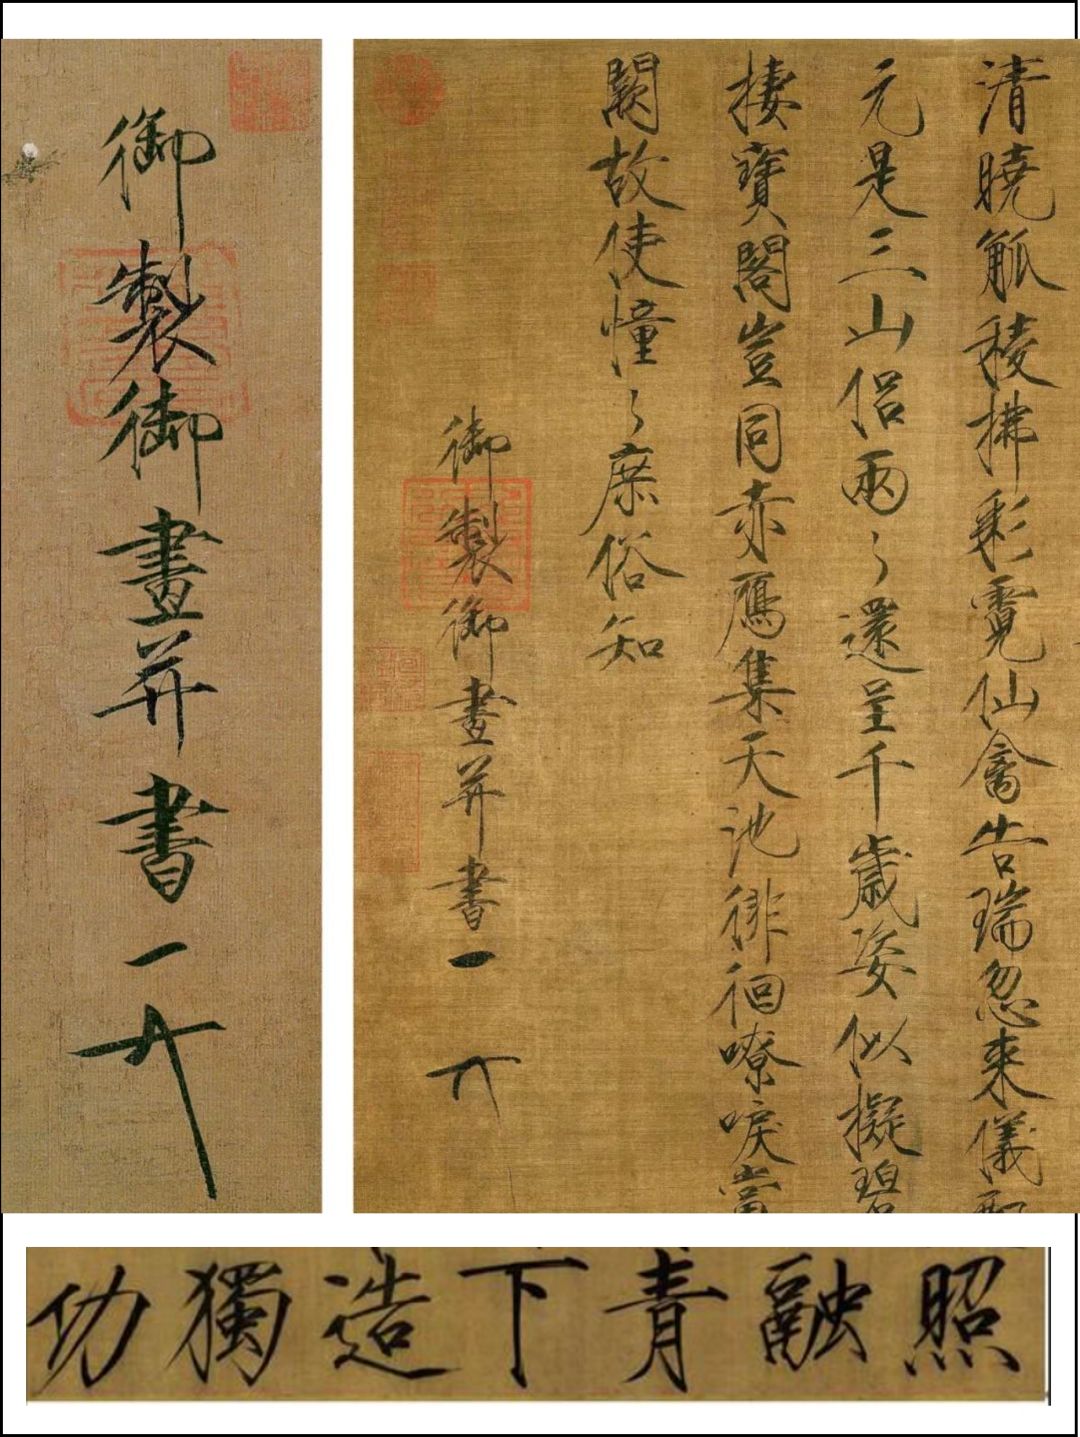 清曉觚稜拂彩霓仙禽告瑞忽來儀
元是三山侶兩〻還呈千歲姿似擬碧
棲寶閣豈同赤鴈集天池徘徊嘹唳當
闕故使憧〻庶俗知
御製御畫并書一
御製御畫并書一
照融青下造獨功